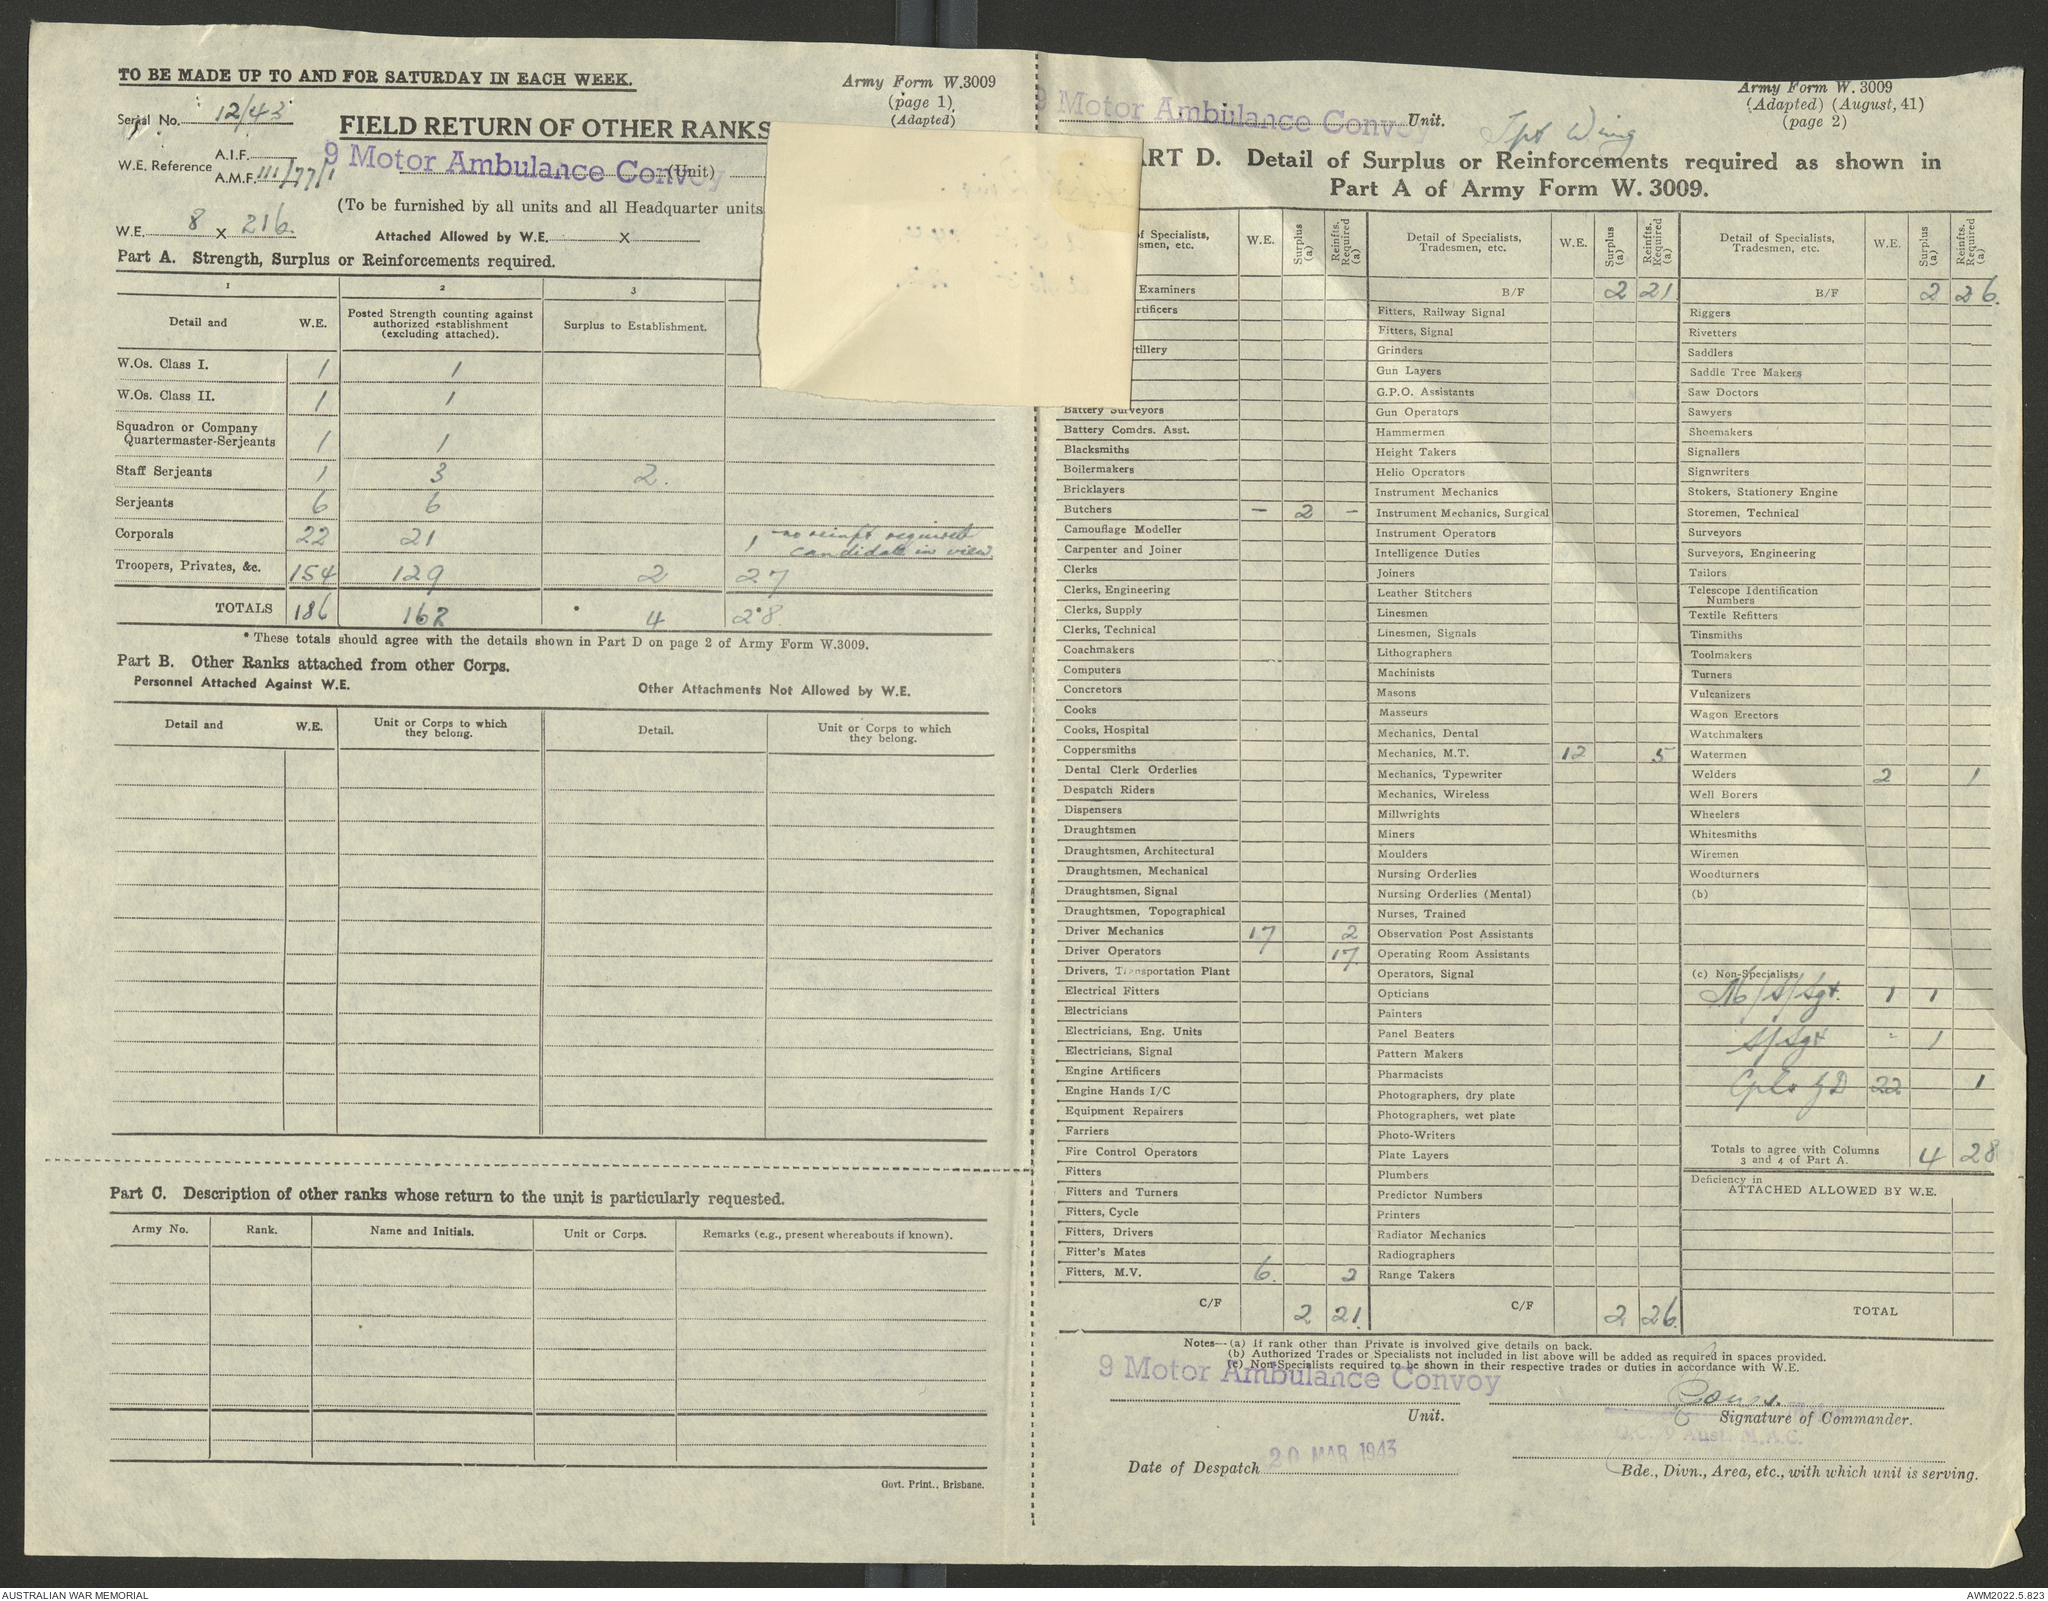 TO BE MADE UP TO AND FOR SATURDAY IN EACH WEEK.
Army Form W.3009
(page 1)
(Adapted)
Serial No. 12/43
FIELD RETURN OF OTHER RANKS
W.E. Reference A.I.F.
A.M.F. III/77/1
9 Motor Ambulance Convoy (Unit)
(To be furnished by all units and all Headquarter units
W.E. 8 x 216.
Attached Allowed by W.E. x
Part A. Strength, Surplus or Reinforcements required.
1 2 3
Detail and W.E. Posted Strength counting against authorized establishment (excluding attached). Surplus to Establishment.
W.Os. Class I. 1 1
W.Os. Class II. 1 1
Squadron or Company
Quartermaster-Serjeants 1 1
Staff Serjeants 1 3 2.
Serjeants 6 6
Corporals 22 21 1 no reinft required
candidate in view.
Troopers, Privates, &c. 154 129 2 27
TOTALS 186 162 4 28.
* These totals should agree with the details shown in Part D on page 2 of Army Form W.3009.
Part B. Other Ranks attached from other Corps.
Personnel Attached Against W.E. Other Attachments Not Allowed by W.E.
Detail and W.E. Unit or Corps to which they belong. Detail. Unit or Corps to which they belong.
Part C. Description of other ranks whose return to the unit is particularly requested.
Army No. Rank. Name and Initials. Unit or Corps. Remarks (e.g., present whereabouts if known).
Govt. Print., Brisbane.
Army Form W. 3009
(Adapted) (August, 41)
(page 2)
9 Motor Ambulance Convoy Unit. Tpt Wing
ART D. Detail of Surplus or Reinforcements required as shown in
Part A of Army Form W. 3009.
of Specialists, smen, etc. W.E. Surplus (a) Reinfts. Required (a)
Examiners
rtificers
tillery
Battery Surveyors
Battery Comdrs. Asst.
Blacksmiths
Boilermakers
Bricklayers
Butchers - 2 -
Camouflage Modeller
Carpenter and Joiner
Clerks
Clerks, Engineering
Clerks, Supply
Clerks, Technical
Coachmakers
Computers
Concretors
Cooks
Cooks, Hospital
Coppersmiths
Dental Clerk Orderlies
Despatch Riders
Dispensers
Draughtsmen
Draughtsmen, Architectural
Draughtsmen, Mechanical
Draughtsmen, Signal
Draughtsmen, Topographical
Driver Mechanics 17 2
Driver Operators 17.
Drivers, Transportation Plant
Electrical Fitters
Electricians
Electricians, Eng. Units
Electricians, Signal
Engine Artificers
Engine Hands I/C
Equipment Repairers
Farriers
Fire Control Operators
Fitters
Fitters and Turners
Fitters, Cycle
Fitters, Drivers
Fitter's Mates
Fitters, M.V. 6. 2
C/F 2 21.
Detail of Specialists, Tradesmen, etc. W.E. Surplus (a) Reinfts. Required (a)
B/F 2 21
Fitters, Railway Signal
Fitters, Signal
Grinders
Gun Layers
G.P.O. Assistants
Gun Operators
Hammermen
Height Takers
Helio Operators
Instrument Mechanics
Instrument Mechanics, Surgical
Instrument Operators
Intelligence Duties
Joiners
Leather Stitchers
Linesmen
Linesmen, Signals
Lithographers
Machinists
Masons
Masseurs
Mechanics, Dental
Mechanics, M.T. 12 5
Mechanics, Typewriter
Mechanics, Wireless
Millwrights
Miners
Moulders
Nursing Orderlies
Nursing Orderlies (Mental)
Nurses, Trained
Observation Post Assistants
Operating Room Assistants
Operators, Signal
Opticians
Painters
Panel Beaters
Pattern Makers
Pharmacists
Photographers, dry plate
Photographers, wet plate
Photo-Writers
Plate Layers
Plumbers
Predictor Numbers
Printers
Radiator Mechanics
Radiographers
Range Takers
C/F 2 26.
Detail of Specialists, Tradesmen, etc. W.E. Surplus (a) Reinfts. Required (a)
B/F 2 26.
Riggers
Rivetters
Saddlers
Saddle Tree Makers
Saw Doctors
Sawyers
Shoemakers
Signallers
Signwriters
Stokers, Stationery Engine
Storemen, Technical
Surveyors
Surveyors, Engineering
Tailors
Telescope Identification
Numbers
Textile Refitters
Tinsmiths
Toolmakers
Turners
Vulcanizers
Wagon Erectors
Watchmakers
Watermen
Welders 2 1
Well Borers
Wheelers
Whitesmiths
Wiremen
Woodturners
(b)
(c) Non-Specialists
M/S/Sgt. 1 1
S/Sgt - 1
Cpls G D 22 1
Totals to agree with Columns
3 and 4 of Part A. 4 28
Deficiency in
ATTACHED ALLOWED BY W.E.
TOTAL
Notes—(a) If rank other than Private is involved give details on back.
(b) Authorized Trades or Specialists not included in list above will be added as required in spaces provided.
(c) Non-Specialists required to be shown in their respective trades or duties in accordance with W.E.
9 Motor Ambulance Convoy
Unit.
Signature of Commander.
O.C. 9 Aust. M.A.C.
Date of Despatch 20 MAR 1943
Bde., Divn., Area, etc., with which unit is serving.
AUSTRALIAN WAR MEMORIAL
AWM2022.5.823